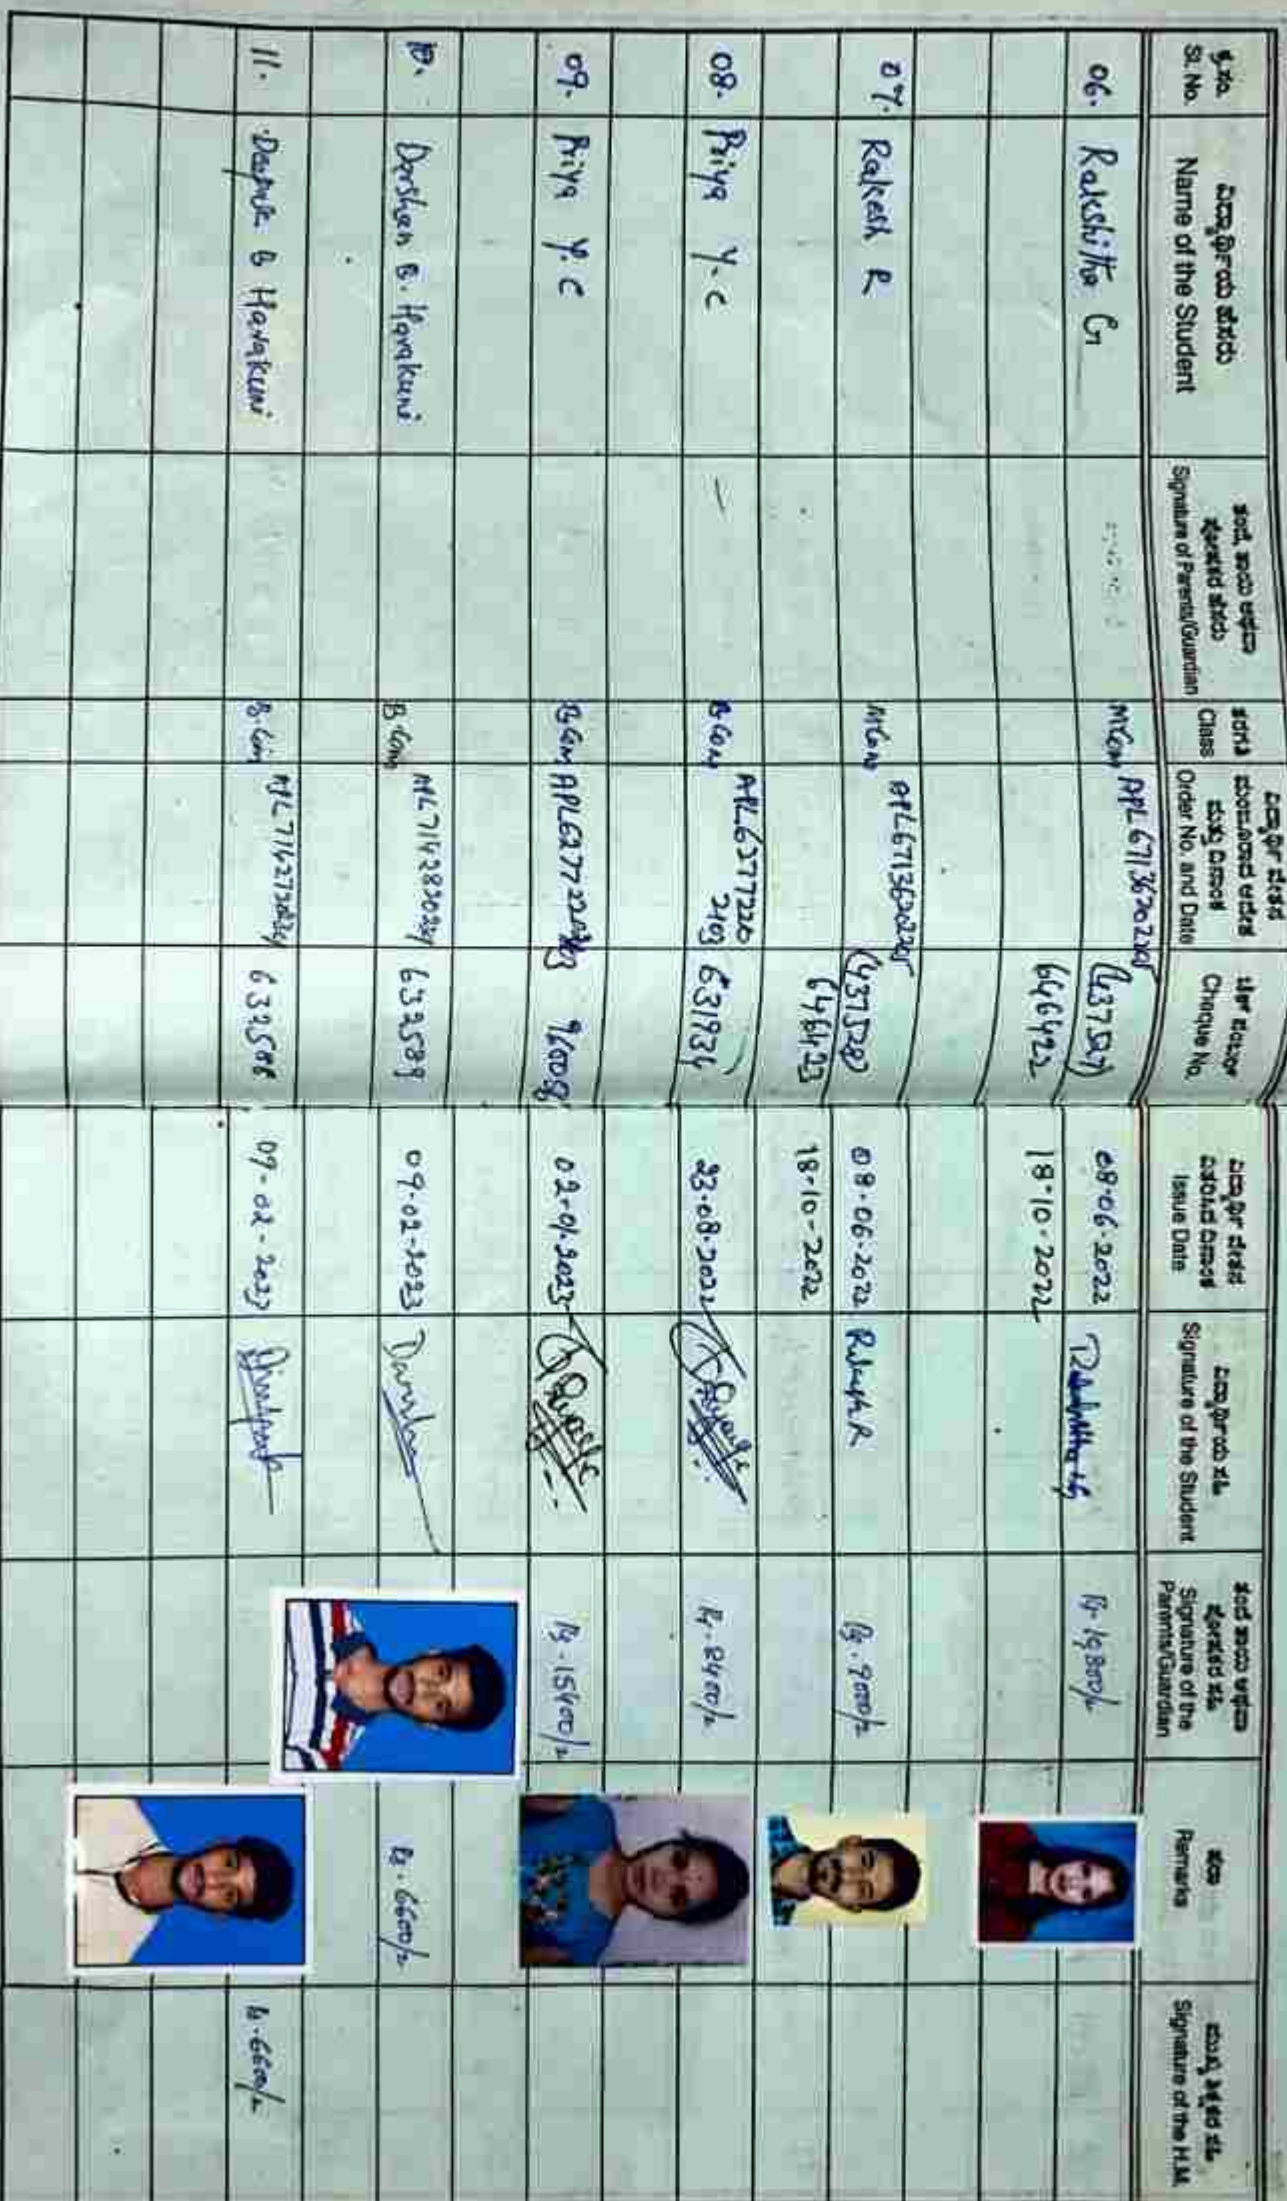 ಕ್ರ.ಸಂ.
Sl. No.
ವಿದ್ಯಾರ್ಥಿಯ ಹೆಸರು
Name of the Student
ತಂದೆ, ತಾಯಿ ಅಥವಾ
ಪೋಷಕರ ಹೆಸರು
Signature of Parents/Guardian
ತರಗತಿ
Class
ವಿದ್ಯಾರ್ಥಿ ವೇತನ
ಮಂಜೂರಾದ ಆದೇಶ
ಮತ್ತು ದಿನಾಂಕ
Order No. and Date
ಚೆಕ್ ನಂಬರ್
Cheque No.
ವಿದ್ಯಾರ್ಥಿ ವೇತನ
ವಿತರಿಸಿದ ದಿನಾಂಕ
Issue Date
ವಿದ್ಯಾರ್ಥಿಯ ಸಹಿ
Signature of the Student
ತಂದೆ ತಾಯಿ ಅಥವಾ
ಪೋಷಕರ ಸಹಿ
Signature of the
Parents/Guardian
ಷರಾ
Remarks
ಮುಖ್ಯ ಶಿಕ್ಷಕರ ಸಹಿ
Signature of the H.M.
06. Rakshitha G MCom 08.06.2022 Rs.
646422 18.10.2022
07. Rakesh R MCom 08.06.2022 Rakesh R Rs. 9000/-
646423 18.10-2022
08. Priya Y.C BCom APL6377220 631934 23.08.2022 Rs. 8400/-
2103
09. Priya Y.C BCom 02.01.2023 Rs. 15400/-
10. Darshan B. Harakuni B.Com 632589 09.02-2023 Darshan Rs. 6600/-
11. Deepak B Harakuni B.Com 09-02-2023 Rs. 6600/-